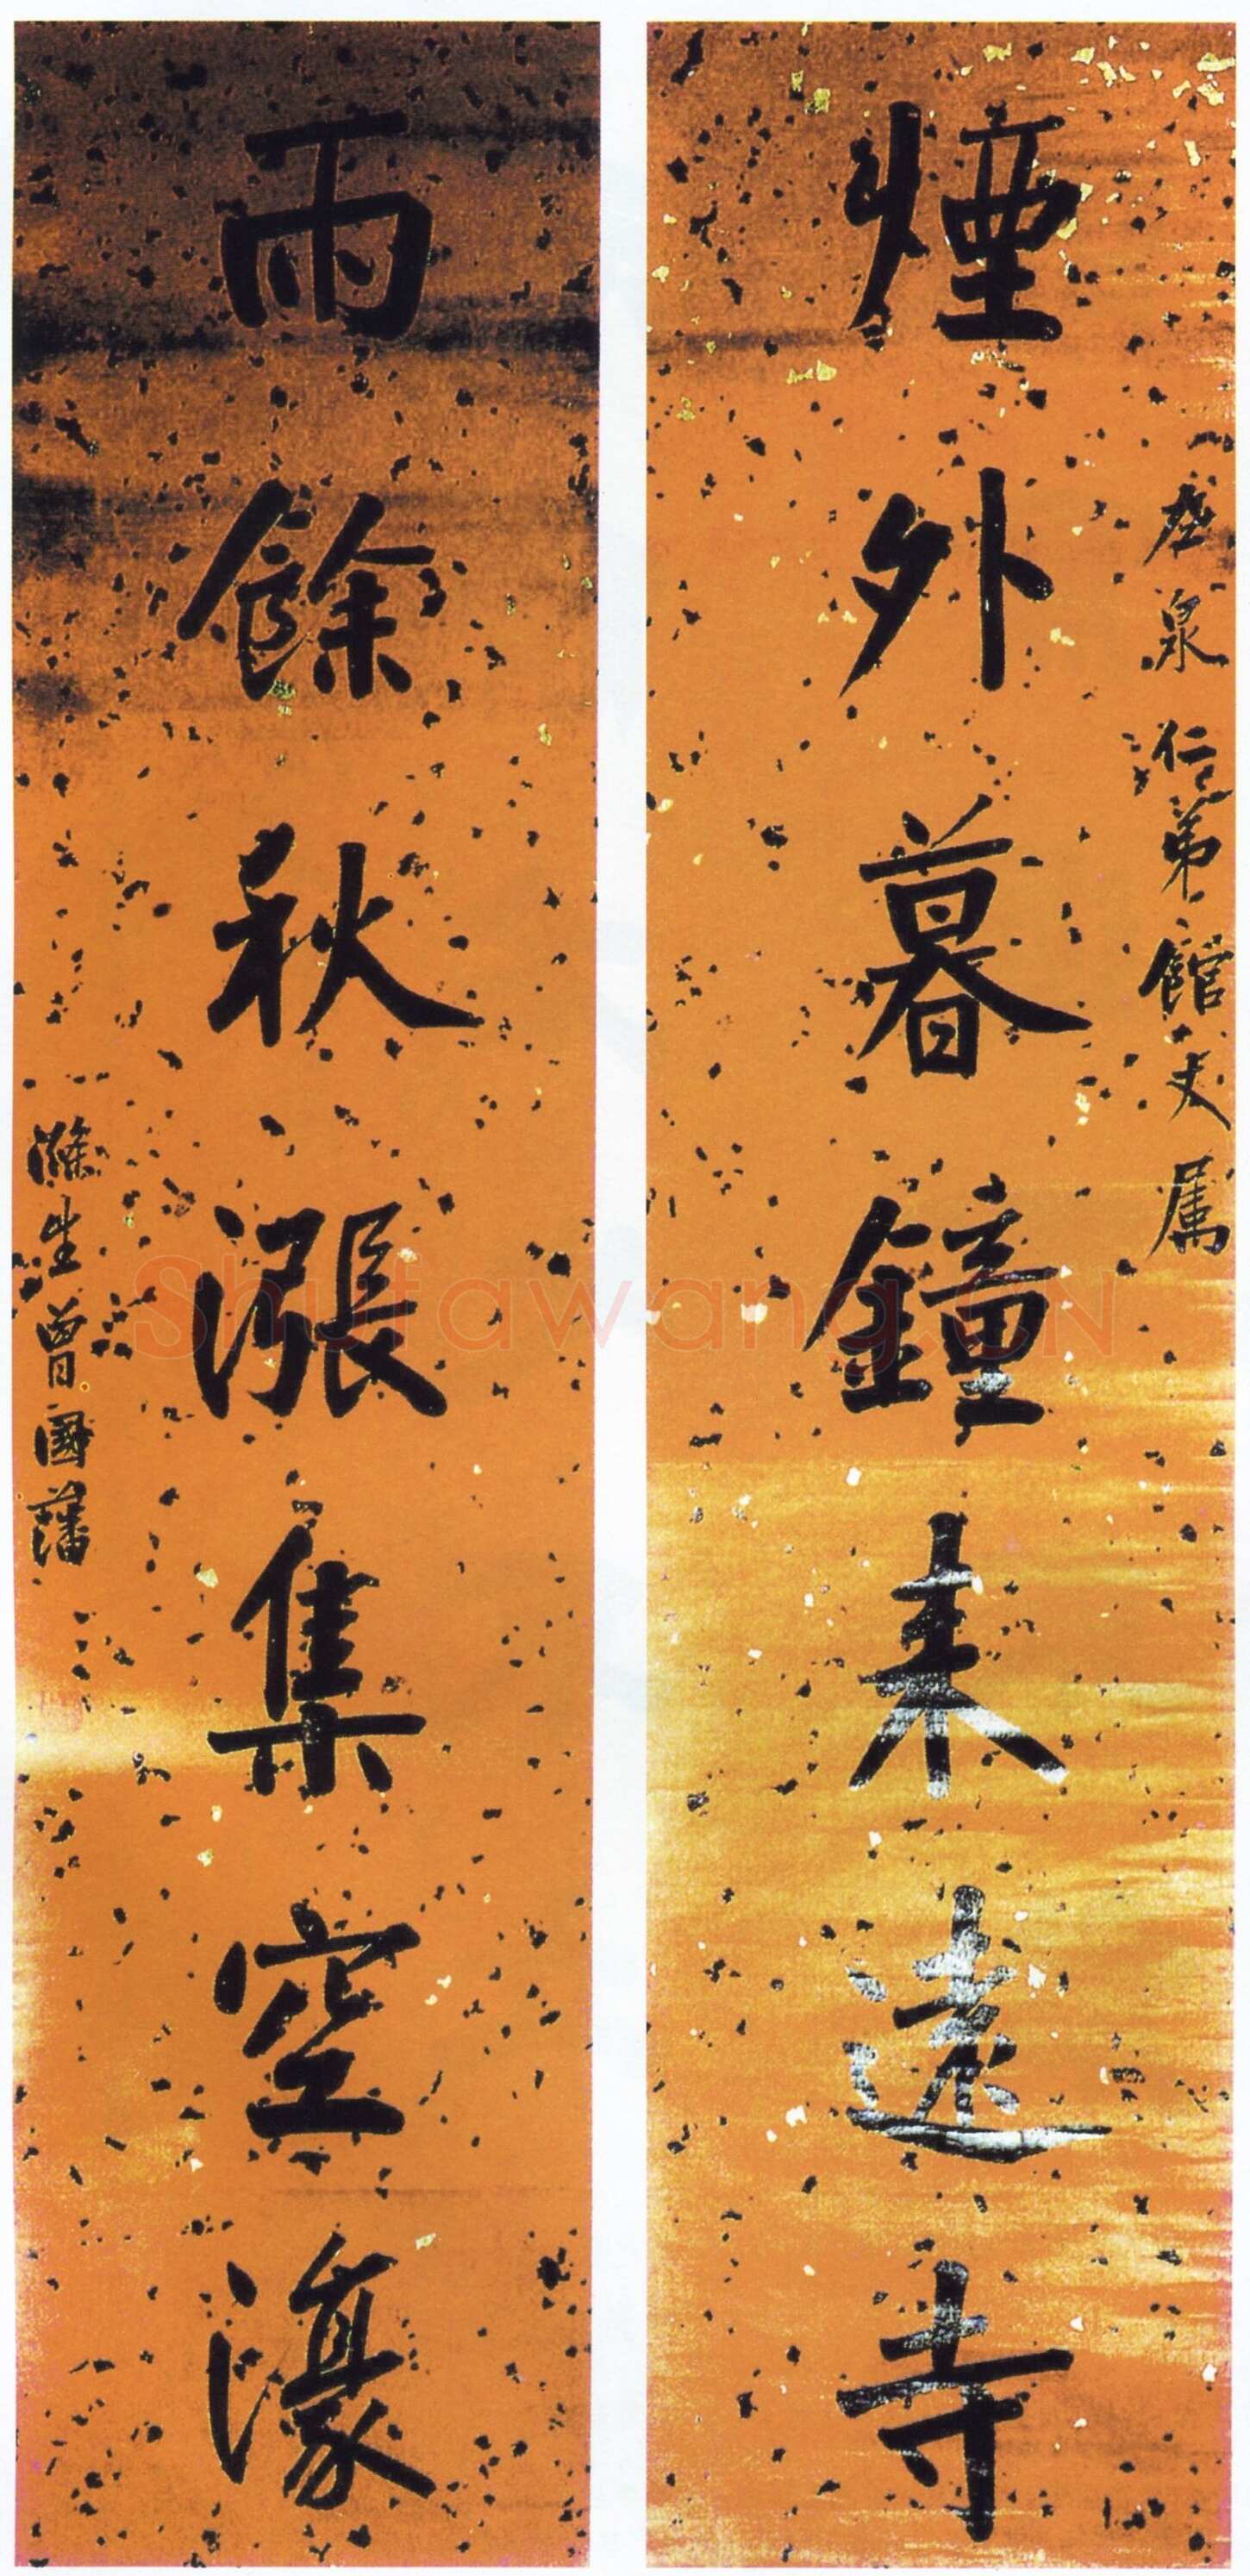 煙外暮鐘來遠寺
泉仁弟館丈属
雨餘秋漲集空濠
滌生曾國藩
Shufawang.CN